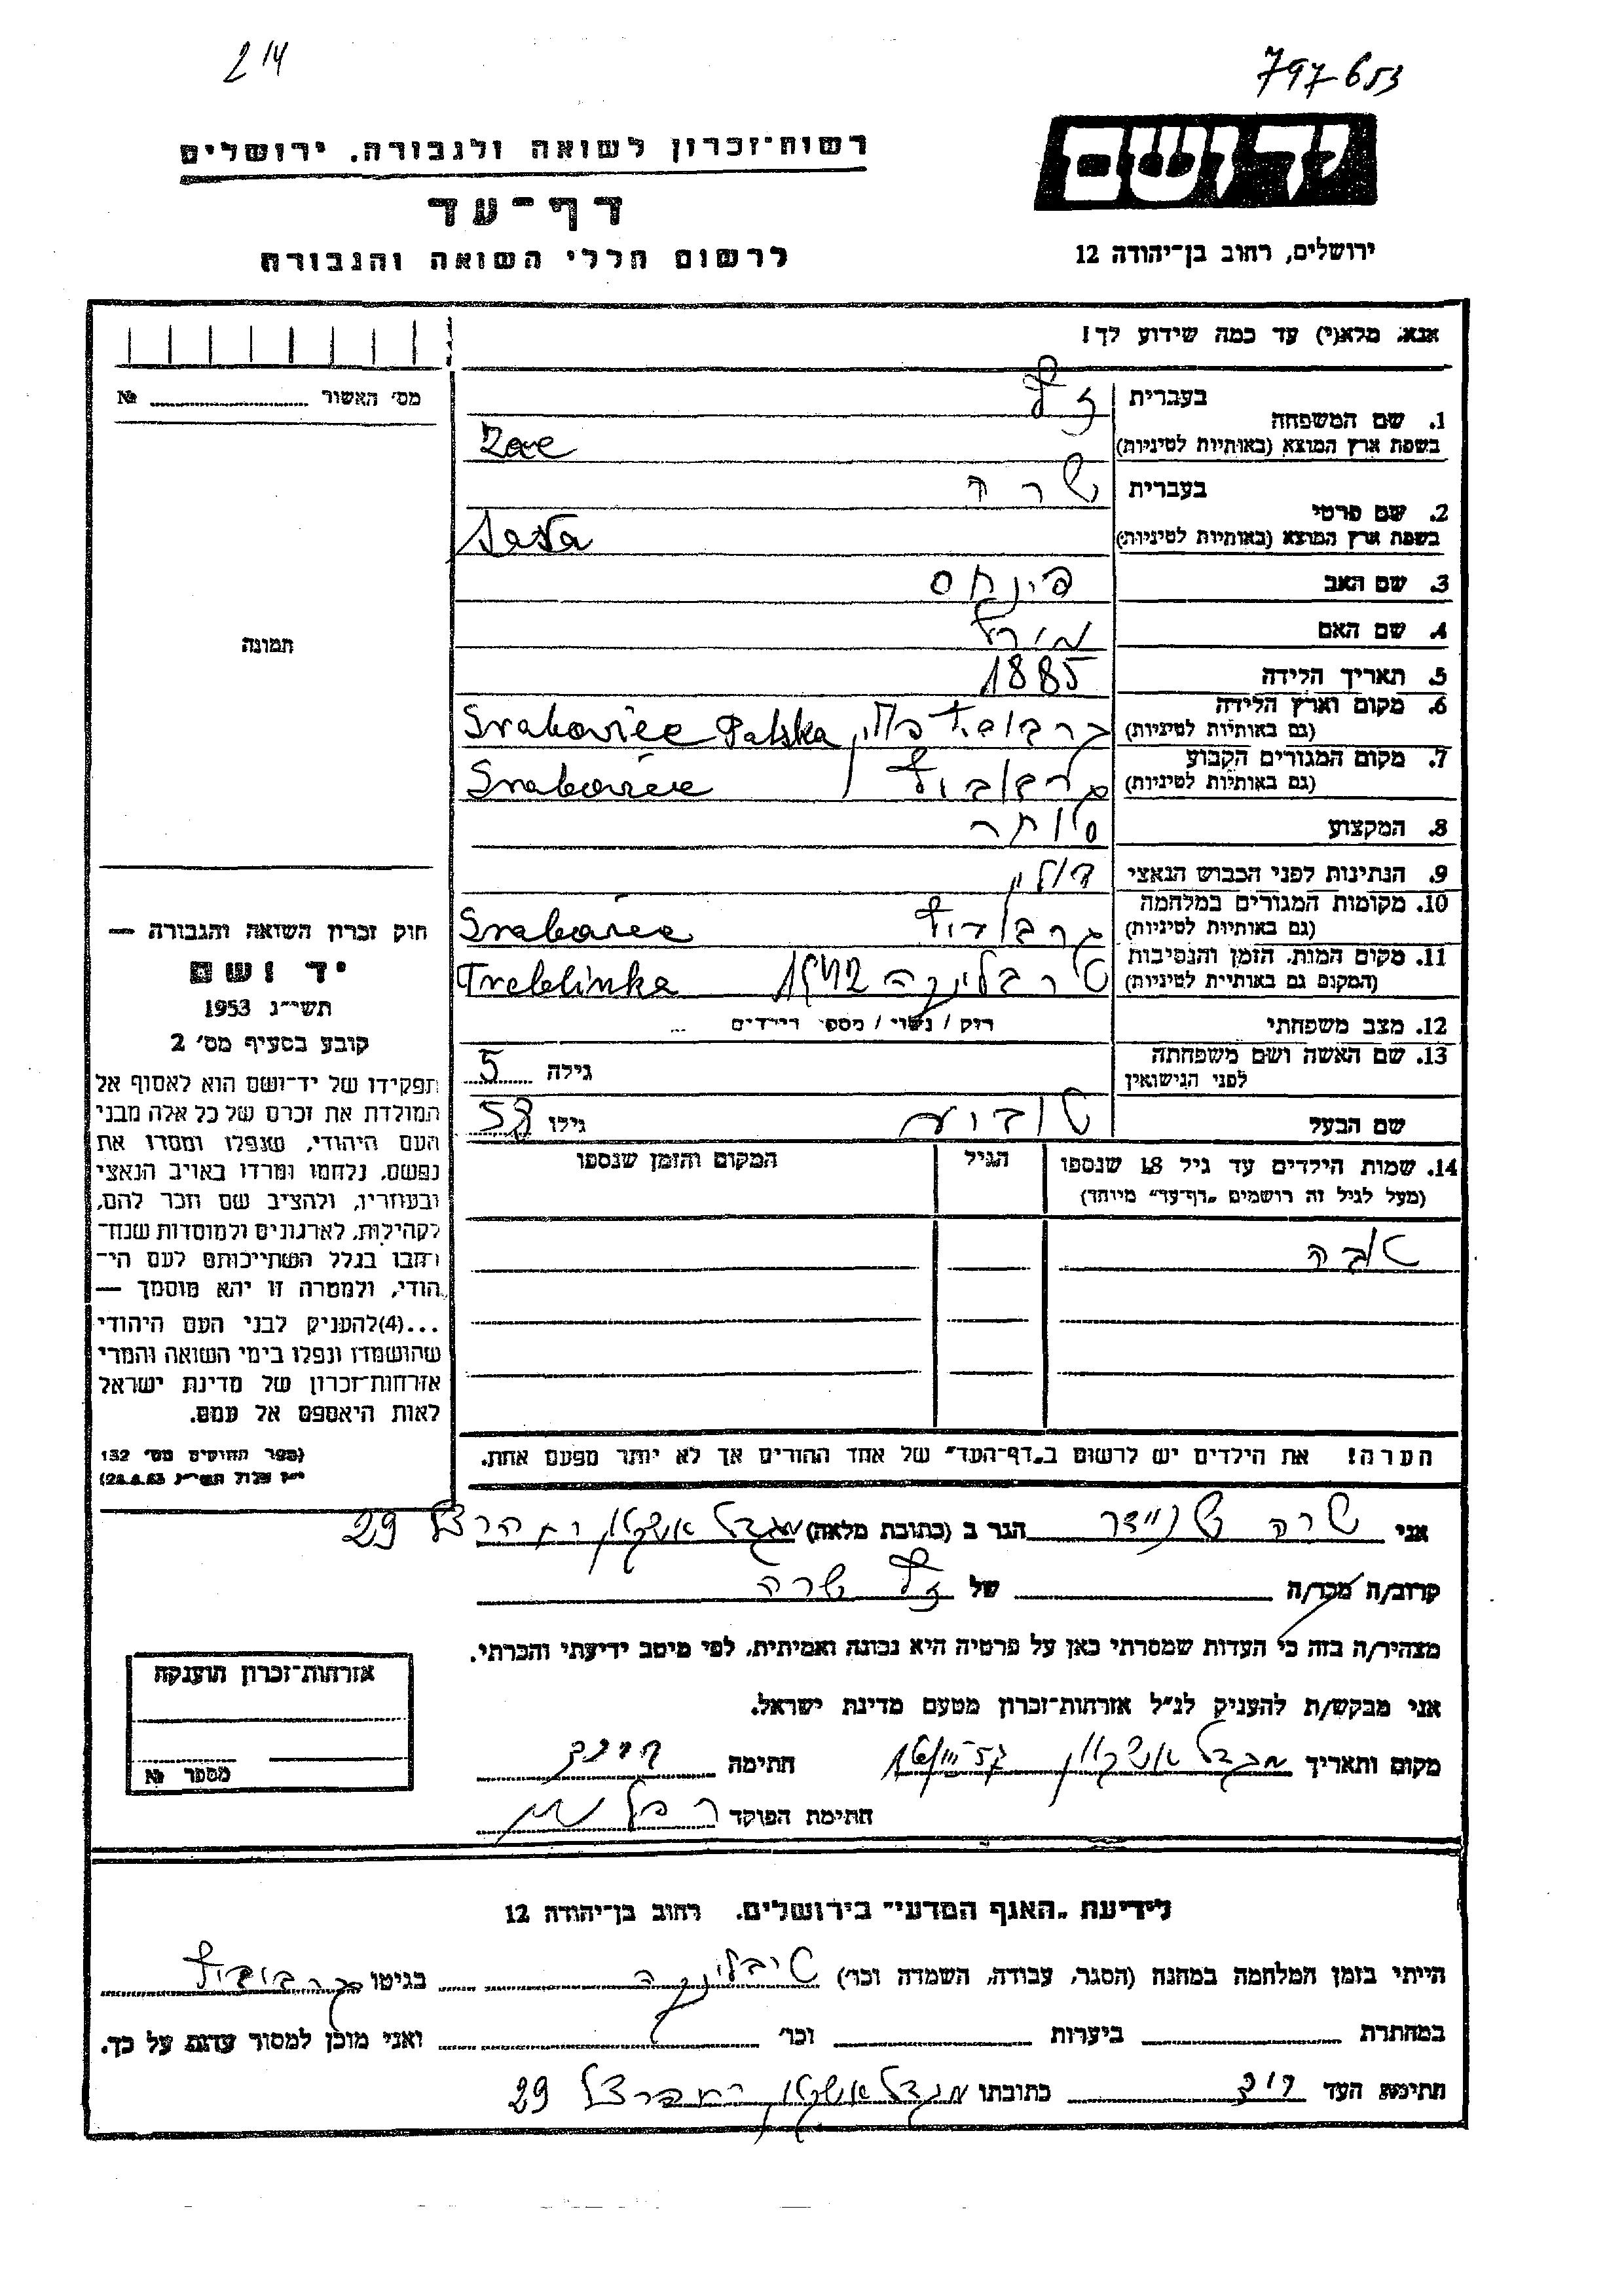 214
797653
יד ושם
רשות־זכרון לשואה ולגבורה. ירושלים
דף־עד
לרשום חללי השואה והגבורה
ירושלים, רחוב בן־יהודה 12
אנא, מלא(י) עד כמה שידוע לך!
מס׳ האשור №
1. שם המשפחה
בעברית
בשפת ארץ המוצא (באותיות לטיניות)
2. שם פרטי
בעברית שרה
בשפת ארץ המוצא (באותיות לטיניות) Sara
3. שם האב פינחס
4. שם האם
5. תאריך הלידה 1885
6. מקום וארץ הלידה
(גם באותיות לטיניות) Polska
7. מקום המגורים הקבוע
(גם באותיות לטיניות)
8. המקצוע סוחר
9. הנתינות לפני הכבוש הנאצי פולין
10. מקומות המגורים במלחמה
(גם באותיות לטיניות)
11. מקום המות, הזמן והנסיבות
(המקום גם באותיות לטיניות) טרבלינקה 1942 Treblinka
12. מצב משפחתי רוק / נשוי / מספר הילדים
13. שם האשה ושם משפחתה
לפני הנישואין גילה 5
שם הבעל גילו 58
14. שמות הילדים עד גיל 18 שנספו
(מעל לגיל זה רושמים „דף־עד״ מיוחד)
הגיל
המקום והזמן שנספו
טובה
הערה! את הילדים יש לרשום ב„דף־העד״ של אחד ההורים אך לא יותר מפעם אחת.
תמונה
חוק זכרון השואה והגבורה —
יד ושם
תשי״ג 1953
קובע בסעיף מס׳ 2
תפקידו של יד־ושם הוא לאסוף אל
המולדת את זכרם של כל אלה מבני
העם היהודי, שנפלו ומסרו את
נפשם, נלחמו ומרדו באויב הנאצי
ובעוזריו, ולהציב שם וזכר להם,
לקהילות, לארגונים ולמוסדות שנח־
רבו בגלל השתייכותם לעם הי־
הודי, ולמטרה זו יהא מוסמך —
...(4)להעניק לבני העם היהודי
שהושמדו ונפלו בימי השואה והמרי
אזרחות־זכרון של מדינת ישראל
לאות היאספם אל עמם.
(ספר החוקים מס׳ 132
אני שרה שניידר הגר ב (כתובת מלאה) מגדל אשקלון רח הרצל 29
קרוב/ה מכר/ה של שרה
מצהיר/ה בזה כי העדות שמסרתי כאן על פרטיה היא נכונה ואמיתית, לפי מיטב ידיעתי והכרתי.
אני מבקש/ת להעניק לנ״ל אזרחות־זכרון מטעם מדינת ישראל.
מקום ותאריך מגדל אשקלון חתימה
חתימת הפוקד
אזרחות־זכרון תוענקה
מספר №
לידיעת „האגף המדעי״ בירושלים. רחוב בן־יהודה 12
הייתי בזמן המלחמה במחנה (הסגר, עבודה, השמדה וכו׳) בגיטו
במחתרת ביערות וכו׳ ואני מוכן למסור עדות על כך.
חתימת העד כתובתו מגדל אשקלון רח הרצל 29